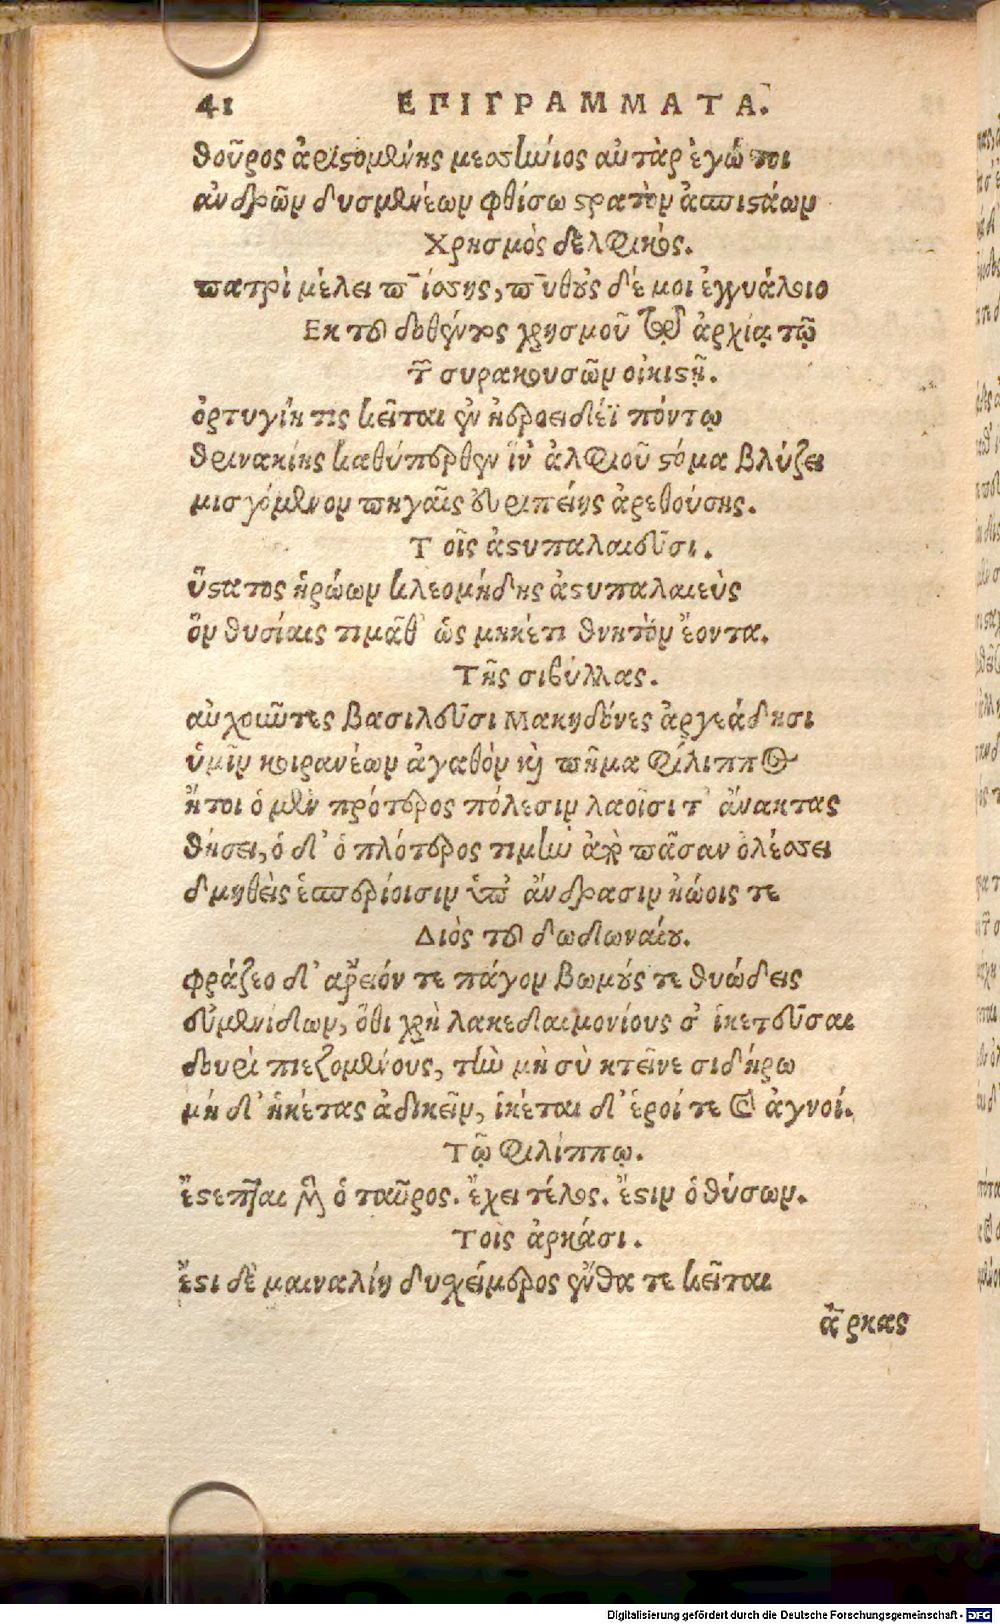 41 ΕΠΙΓΡΑΜΜΑΤΑ.
θοῦρος ἀριστομένης μεσσήνιος αὐτὰρ ἐγώ τοι
ἀνδρῶν δυσμενέων φθίσω στρατὸν ἀσπιστάων
Χρησμὸς δελφικός.
πατρὶ μέλει πίσης, πυθοῖς δέ μοι ἐγγυάλοιο
Εκ τοῦ δοθέντος χρησμοῦ ἀρχίᾳ τῷ
τῶν συρακουσῶν οἰκιστῇ.
ὀρτυγίη τις κεῖται ἐν ἠεροειδέϊ πόντῳ
θρινακίης καθύπερθεν ἵν' ἀλφιοῦ στόμα βλύζει
μισγόμενον πηγαῖς εὐριπείης ἀρεθούσης.
Τοῖς ἀστυπαλαιεῦσι.
ὕστατος ἡρώων κλεομήδης ἀστυπαλαιεὺς
ὃν θυσίαις τιμᾶθ' ὡς μηκέτι θνητὸν ἔοντα.
Τῆς σιβύλλας.
αὐχοιῶτες βασιλεῦσι Μακηδόνες ἀργεάδησι
ὑμῖν κοιρανέων ἀγαθὸν καὶ πῆμα φίλιππος
ἤτοι ὁ μὲν πρότερος πόλεσιν λαοῖσι τ' ἄνακτας
θήσει, ὁ δ' ὁπλότερος τιμὴν ἀπὸ πᾶσαν ὀλέσσει
δμηθεὶς ἑσπερίοισιν ὑπ' ἄνδρασιν ἠῴοις τε
Διὸς τοῦ δωδωναίου.
φράζεο δ' ἄρειόν τε πάγον βωμούς τε θυώδεις
εὐμενίδων, ὅθι χρὴ λακεδαιμονίους σ' ἱκετεῦσαι
δουρὶ πιεζομένους, τῶν μὴ σὺ κτεῖνε σιδήρω
μὴ δ' ἠκέτας ἀδικεῖν, ἱκέται δ' ἱεροί τε καὶ ἁγνοί.
Τῷ φιλίππῳ.
ἔστεπται μὲν ὁ ταῦρος. ἔχει τέλος. ἔστιν ὁ θύσων.
Τοῖς ἀρκάσι.
ἔστι δὲ μαιναλίη δυσχείμερος ἔνθα τε κεῖται
ἄρκας
Digitalisierung gefördert durch die Deutsche Forschungsgemeinschaft - DFG